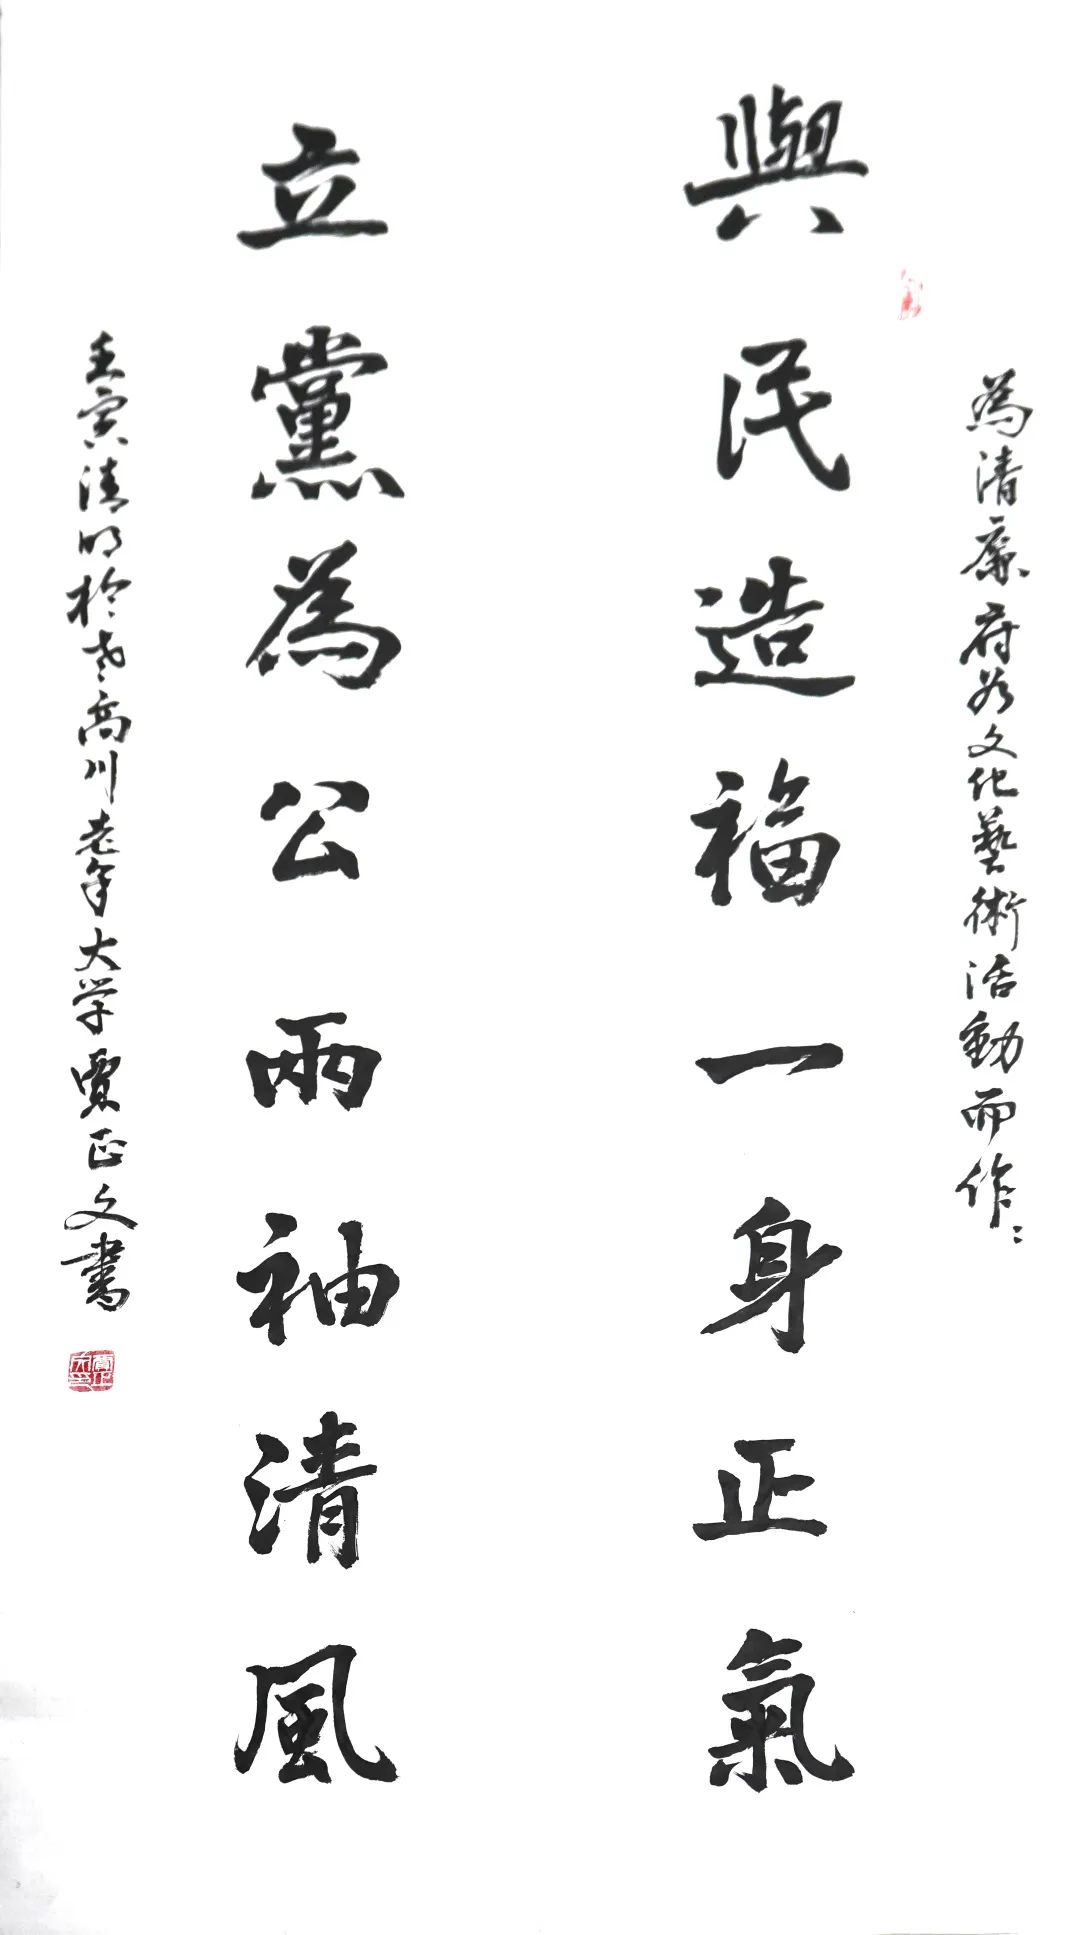 為清廉府谷文化藝術活動而作
與民造福一身正氣
立黨為公兩袖清風
壬寅清明於老高川老年大学賈正文書